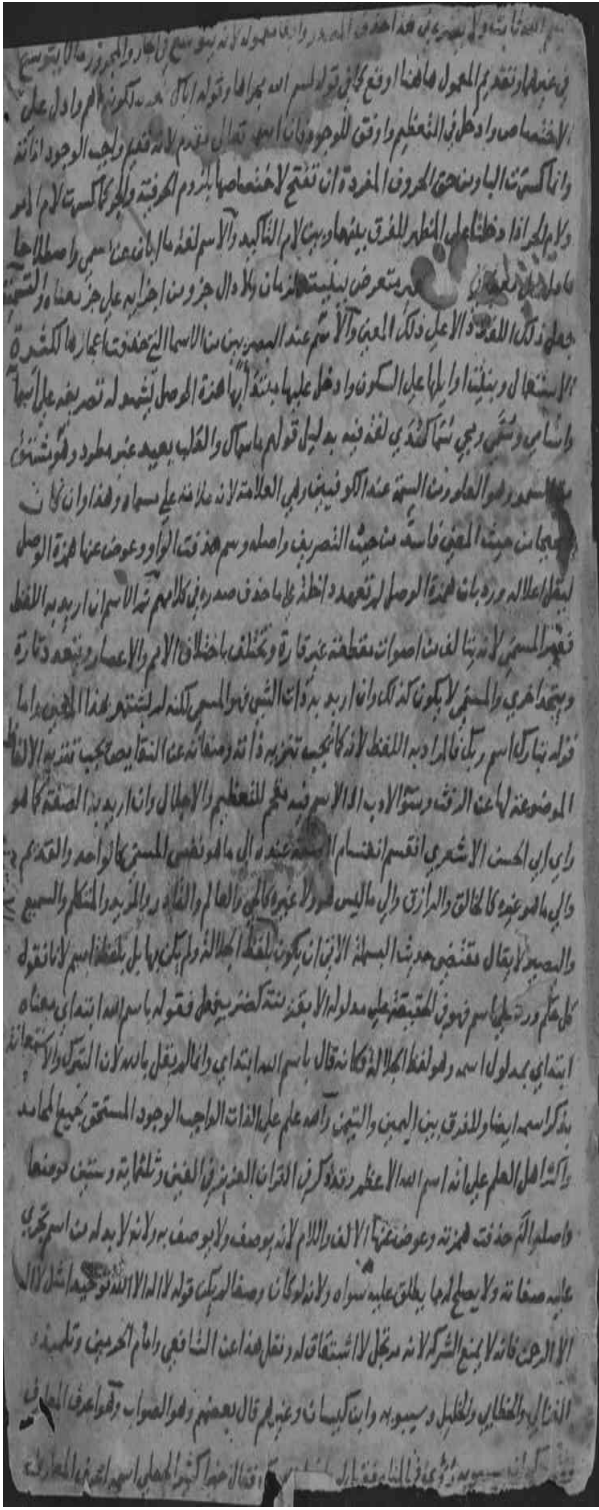 ولا يضر في هذا حذف المصدر وابقاء معموله لانه يتوسع في الجار والمجرور ما لا يتوسع
في غيرهما وتقديم المعمول هاهنا اوقع كما في قوله بسم الله مجراها وقوله اياك نعبد لكونه اهم وادل على
الاختصاص وادخل في التعظيم واوفق للوجود فان اسمه تعالى مقدم لانه قديم واجب الوجود لذاته
وانما كسرت الباء ومن حق الحروف المفردة ان تفتح لاختصاصها بلزوم الحرفية والجر كما كسرت لام الامر
ولام الجر اذا دخلتا على المظهر للفرق بينهما وبين لام التاكيد والاسم لغة ما ابان عن مسمى واصطلاحا
ما دل على معنى في غير متعرض ببنيته لزمان ولا دال جزء من اجزائه على جزء معناه والتسمية
جعل ذلك اللفظ دالا على ذلك المعنى والاسم عند البصريين من الاسما التي حذفت اعجازها لكثرة
الاستعمال وبنيت اوايلها على السكون وادخل عليها مبتدأ بها همزة الوصل يشهد له تصريفه على اسماء
واسامي وسمي ومجي سما كهدي لغة فيه بدليل قولهم ما سماك والقلب بعيد غير مطرد وهو مشتق
من السمو وهو العلو ومن السمة عند الكوفيين وهي العلامة لانه علامة على مسماه وهذا وان كان
صحيحا من حيث المعنى فاسد من حيث التصريف واصله وسم حذفت الواو وعوض عنها همزة الوصل
ليقل اعلاله ورد بان همزة الوصل لم تعهد داخلة على ما حذف صدره في كلامهم ثم الاسم ان اريد به اللفظ
فغير المسمى لانه يتالف من اصوات مقطعة غير قارة ويختلف باختلاف الامم والاعصار ويتعدد تارة
ويتحد اخرى والمسمى لا يكون كذلك وان اريد به ذات الشي فهو المسمى لكنه لم يشتهر بهذا المعنى واما
قوله تبارك اسم ربك فالمراد به اللفظ لانه كما يجب تنزيه ذاته وصفاته عن النقايص يجب تنزيه الالفاظ
الموضوعة لها عن الرفث وسوء الادب او الاسم فيه مقحم للتعظيم والاجلال وان اريد به الصفة كما هو
راي ابي الحسن الاشعري انقسم انقسام الصفة عنده الى ما هو نفس المسمى كالواحد والقديم
والى ما هو غيره كالخالق والرازق والى ما ليس هو ولا غيره كالحي والعالم والقادر والمريد والمتكلم والسميع
والبصير لا يقال مقتضى حديث البسملة الاتي ان يكون بلفظ الجلالة ولم يكن بها بل بلفظ اسم لانا نقول
كل حكم ورد على اسم فهو في الحقيقة على مدلوله الا بقرينة كضرب فعل فقوله باسم الله ابتدائي معناه
ابتدائي بمدلول اسمه وهو لفظ الجلالة فكانه قال باسم الله ابتدائي وانما لم يقل بالله لان التبرك والاستعانة
بذكر اسمه ايضا وللفرق بين اليمين والتيمن والله علم على الذات الواجب الوجود المستحق لجميع المحامد
واكثر اهل العلم على انه اسم الله الاعظم وقد ذكر في القران العزيز في الفين وثلثماية وستين موضعا
واصله اله حذفت همزته وعوض عنها الالف واللام لانه يوصف ولا يوصف به ولانه لا بد له من اسم تجري
عليه صفاته ولا يصلح له مما يطلق عليه سواه ولانه لو كان وصفا لم يكن قوله لا اله الا الله توحيدا مثل لا اله
الا الرحمن فانه لا يمنع الشركة لانه مرتجل لا اشتقاق له ونقل هذا عن الشافعي وامام الحرمين وتلميذه
الغزالي والخطابي والخليل وسيبويه وابن كيسان وغيرهم قال بعضهم وهو الصواب وهو اعرف المعارف
سيبويه في المنام فقيل له فقال خيرا كثيرا لجعلي اسمه اعرف المعارف